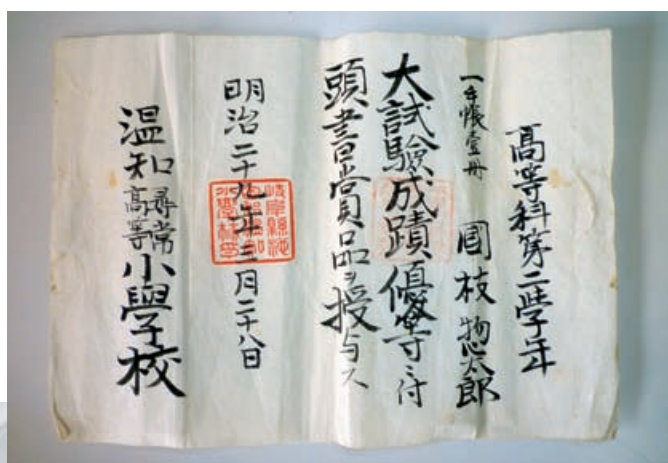 高等科第二學年
國枝惣太郎
一手帳壹冊
大試驗成蹟優等ニ付
頭書ノ賞品ヲ授与ス
明治二十九年三月二十八日
温知尋常高等小學校